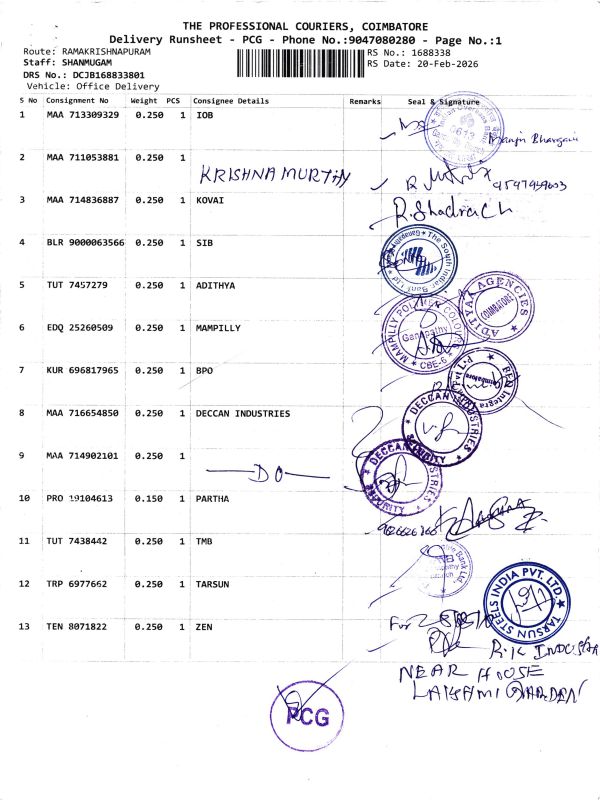 THE PROFESSIONAL COURIERS, COIMBATORE
Delivery Runsheet - PCG - Phone No.:9047080280 - Page No.:1
Route: RAMAKRISHNAPURAM
RS No.: 1688338
Staff: SHANMUGAM
RS Date: 20-Feb-2026
DRS No.: DCJB168833801
Vehicle: Office Delivery
S No Consignment No Weight PCS Consignee Details Remarks Seal & Signature
1 MAA 713309329 0.250 1 IOB
2 MAA 711053881 0.250 1 KRISHNA MURTHY
3 MAA 714836887 0.250 1 KOVAI R.Shadrach
4 BLR 9000063566 0.250 1 SIB
The South Indian Bank Ltd
5 TUT 7457279 0.250 1 ADITHYA
ADITYAA AGENCIES
COIMBATORE
6 EDQ 25260509 0.250 1 MAMPILLY
MAMPILLY
Ganapathy
CBE-6
7 KUR 696817965 0.250 1 BPO
8 MAA 716654850 0.250 1 DECCAN INDUSTRIES
DECCAN INDUSTRIES
SECURITY
9 MAA 714902101 0.250 1 DO
DECCAN INDUSTRIES
SECURITY
10 PRO 19104613 0.150 1 PARTHA
11 TUT 7438442 0.250 1 TMB
12 TRP 6977662 0.250 1 TARSUN
TARSUN STEELS INDIA PVT. LTD.
13 TEN 8071822 0.250 1 ZEN
For
NEAR HOUSE
PCG